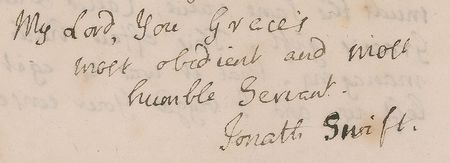 My Lord, You Grace's
most obedient and most
humble Servant.
Jonath Swift.